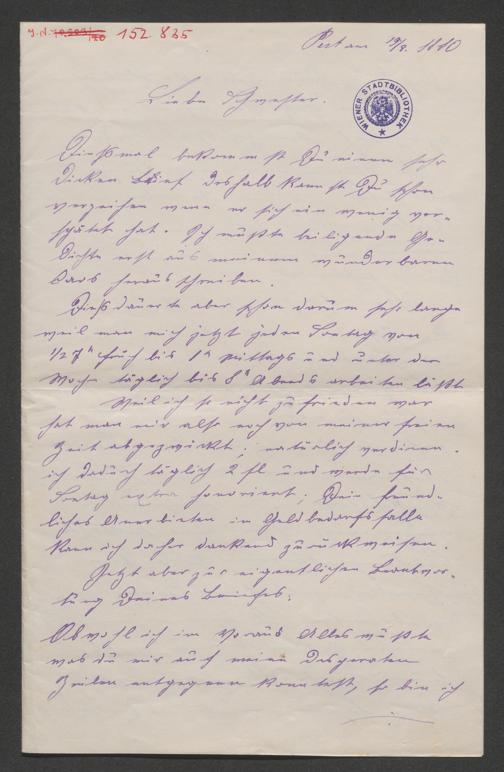 152.835
WIENER STADTBIBLIOTHEK
Pest am 19/8. 1880
Liebe Schwester.
Dießmal bekommst Du einen sehr
dicken Brief deshalb kannst Du schon
verzeihen wenn er sich ein wenig ver-
spätet hat. Ich mußte beiligende Ge-
dichte erst aus meinem wunderbaren
Sars heraus schreiben.
Dieß dauerte aber schon darum sehr lange
weil man mich jetzt jeden Sontag von
1/2 7h früh bis 1h Mittags und unter der
Woche täglich bis 8h Abends arbeiten läßt
Weil ich so nicht zufrieden war
hat man mir also noch von meiner freien
Zeit abgezwickt; natürlich verdiene
ich dadurch täglich 2 fl und werde für
Sontag extra honoriert; Dein freund-
liches Anerbieten in Geldbedarfsfalle
kann ich daher dankend zurückweisen.
Jetzt aber zur eigentlichen Beantwor-
tung Deines Briefes:
Obwohl ich im Voraus Alles wußte
was du mir auf meine desperaten
Zeilen entgegnen konntest, so bin ich